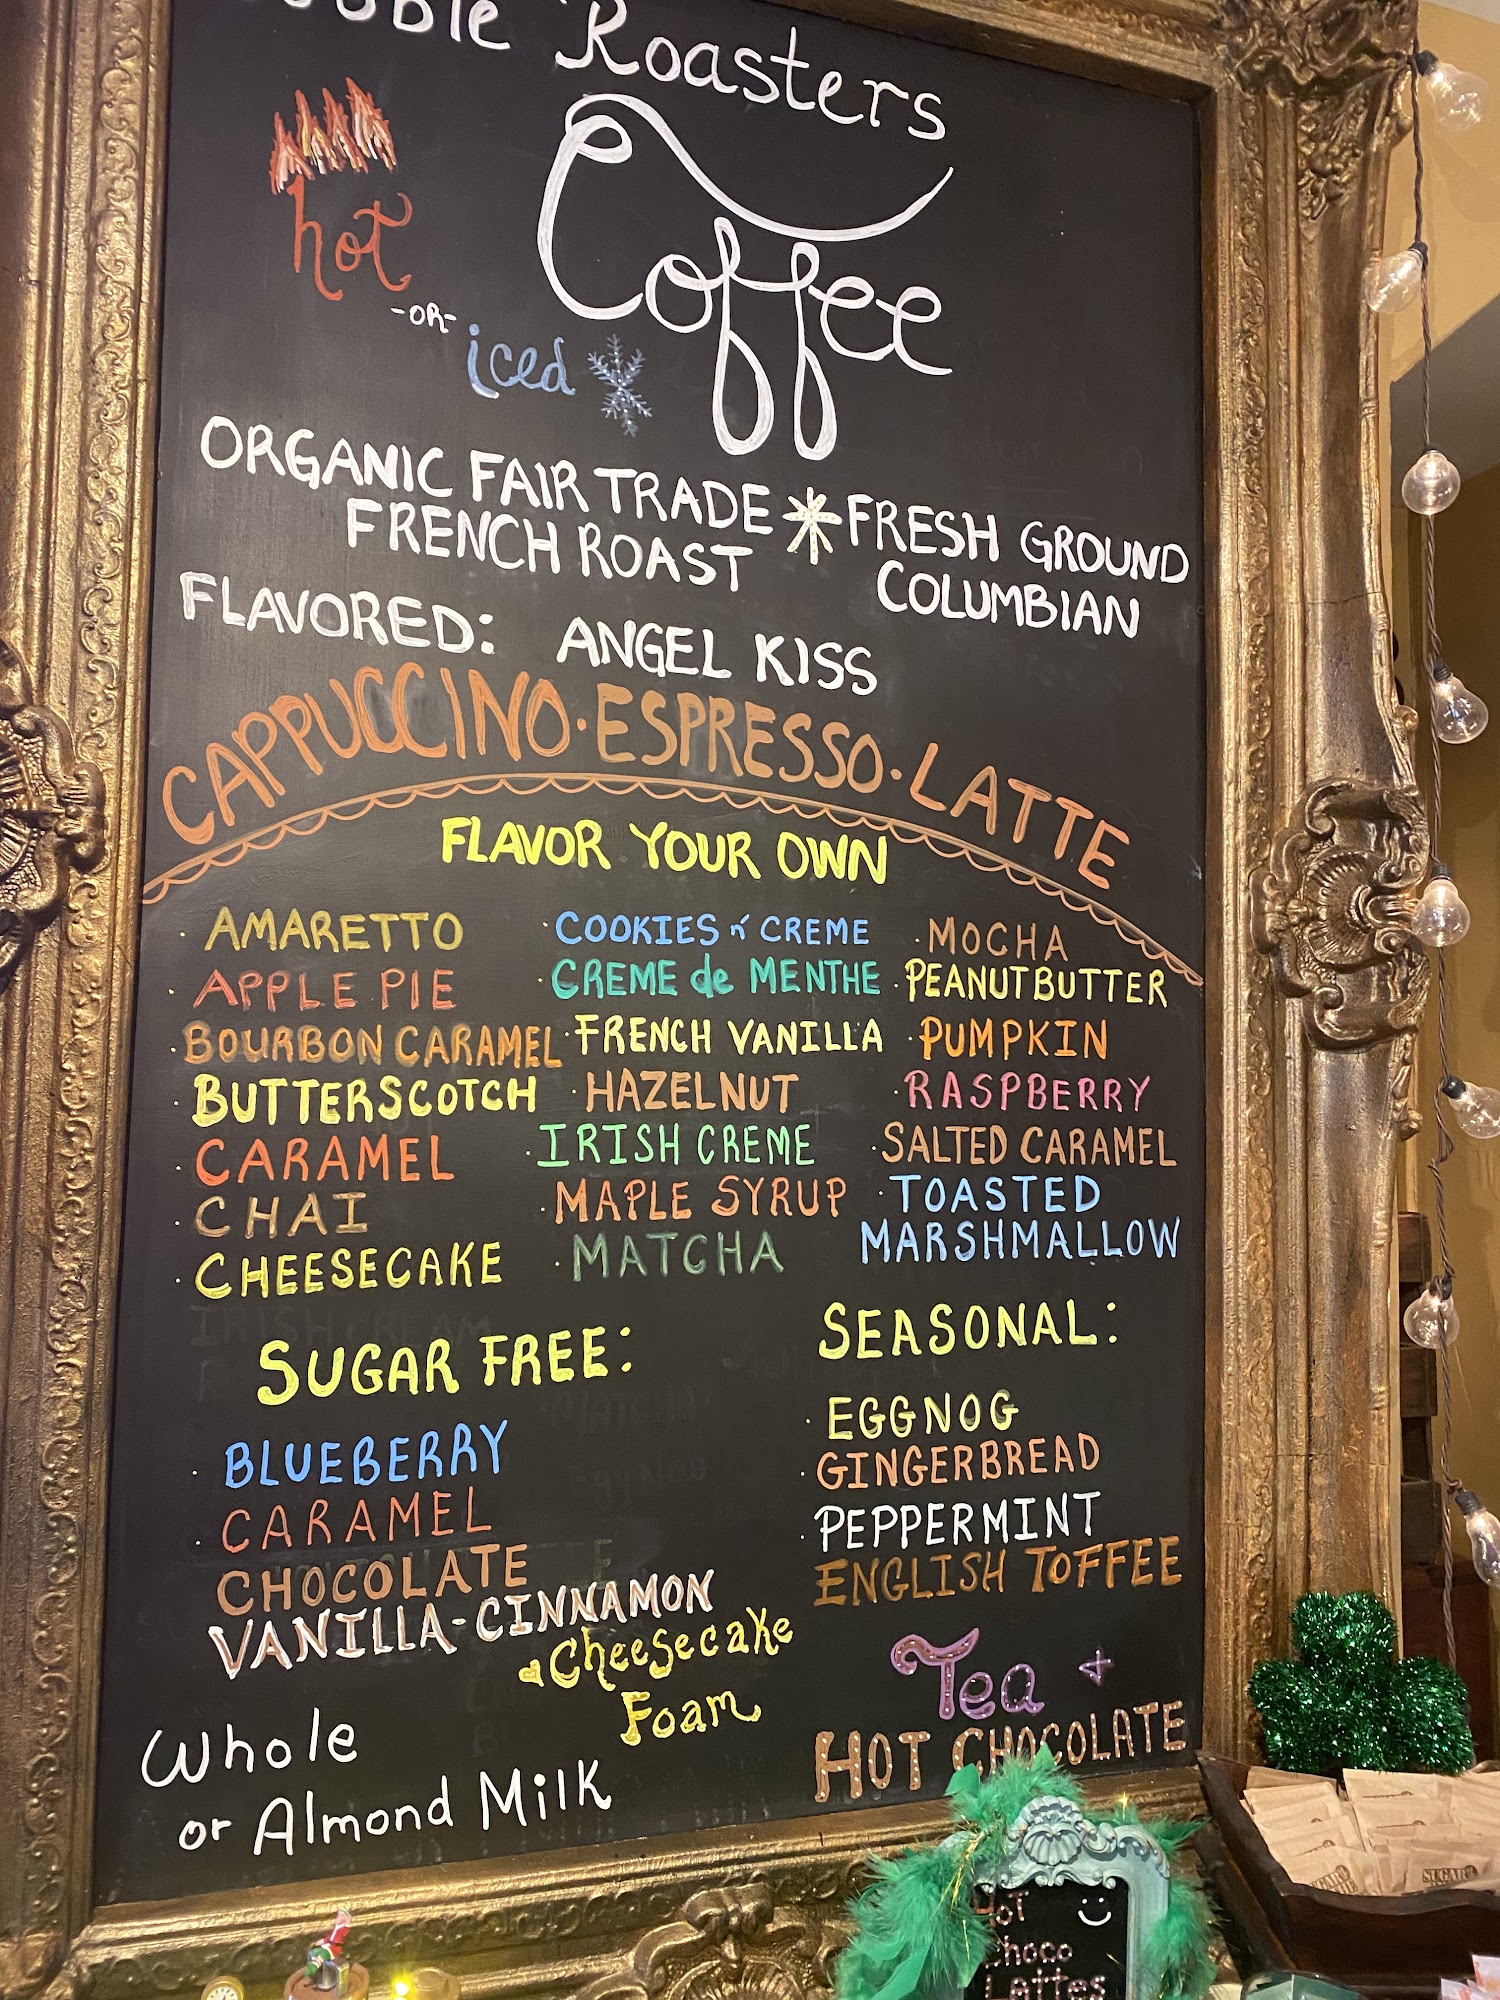 Roasters
Coffee
hot
-OR-
iced
ORGANIC FAIR TRADE
FRENCH ROAST
FRESH GROUND
COLUMBIAN
FLAVORED: ANGEL KISS
CAPPUCCINO · ESPRESSO · LATTE
FLAVOR YOUR OWN
· AMARETTO
· APPLE PIE
· BOURBON CARAMEL
· BUTTERSCOTCH
· CARAMEL
· CHAI
· CHEESECAKE
· COOKIES n' CREME
· CREME de MENTHE
· FRENCH VANILLA
· HAZELNUT
· IRISH CREME
· MAPLE SYRUP
· MATCHA
· MOCHA
· PEANUTBUTTER
· PUMPKIN
· RASPBERRY
· SALTED CARAMEL
· TOASTED
MARSHMALLOW
SUGAR FREE:
· BLUEBERRY
· CARAMEL
CHOCOLATE
VANILLA-CINNAMON
Cheesecake
Foam
SEASONAL:
· EGGNOG
· GINGERBREAD
· PEPPERMINT
ENGLISH TOFFEE
Whole
or Almond Milk
Tea +
HOT CHOCOLATE
HOT
Choco
Lattes